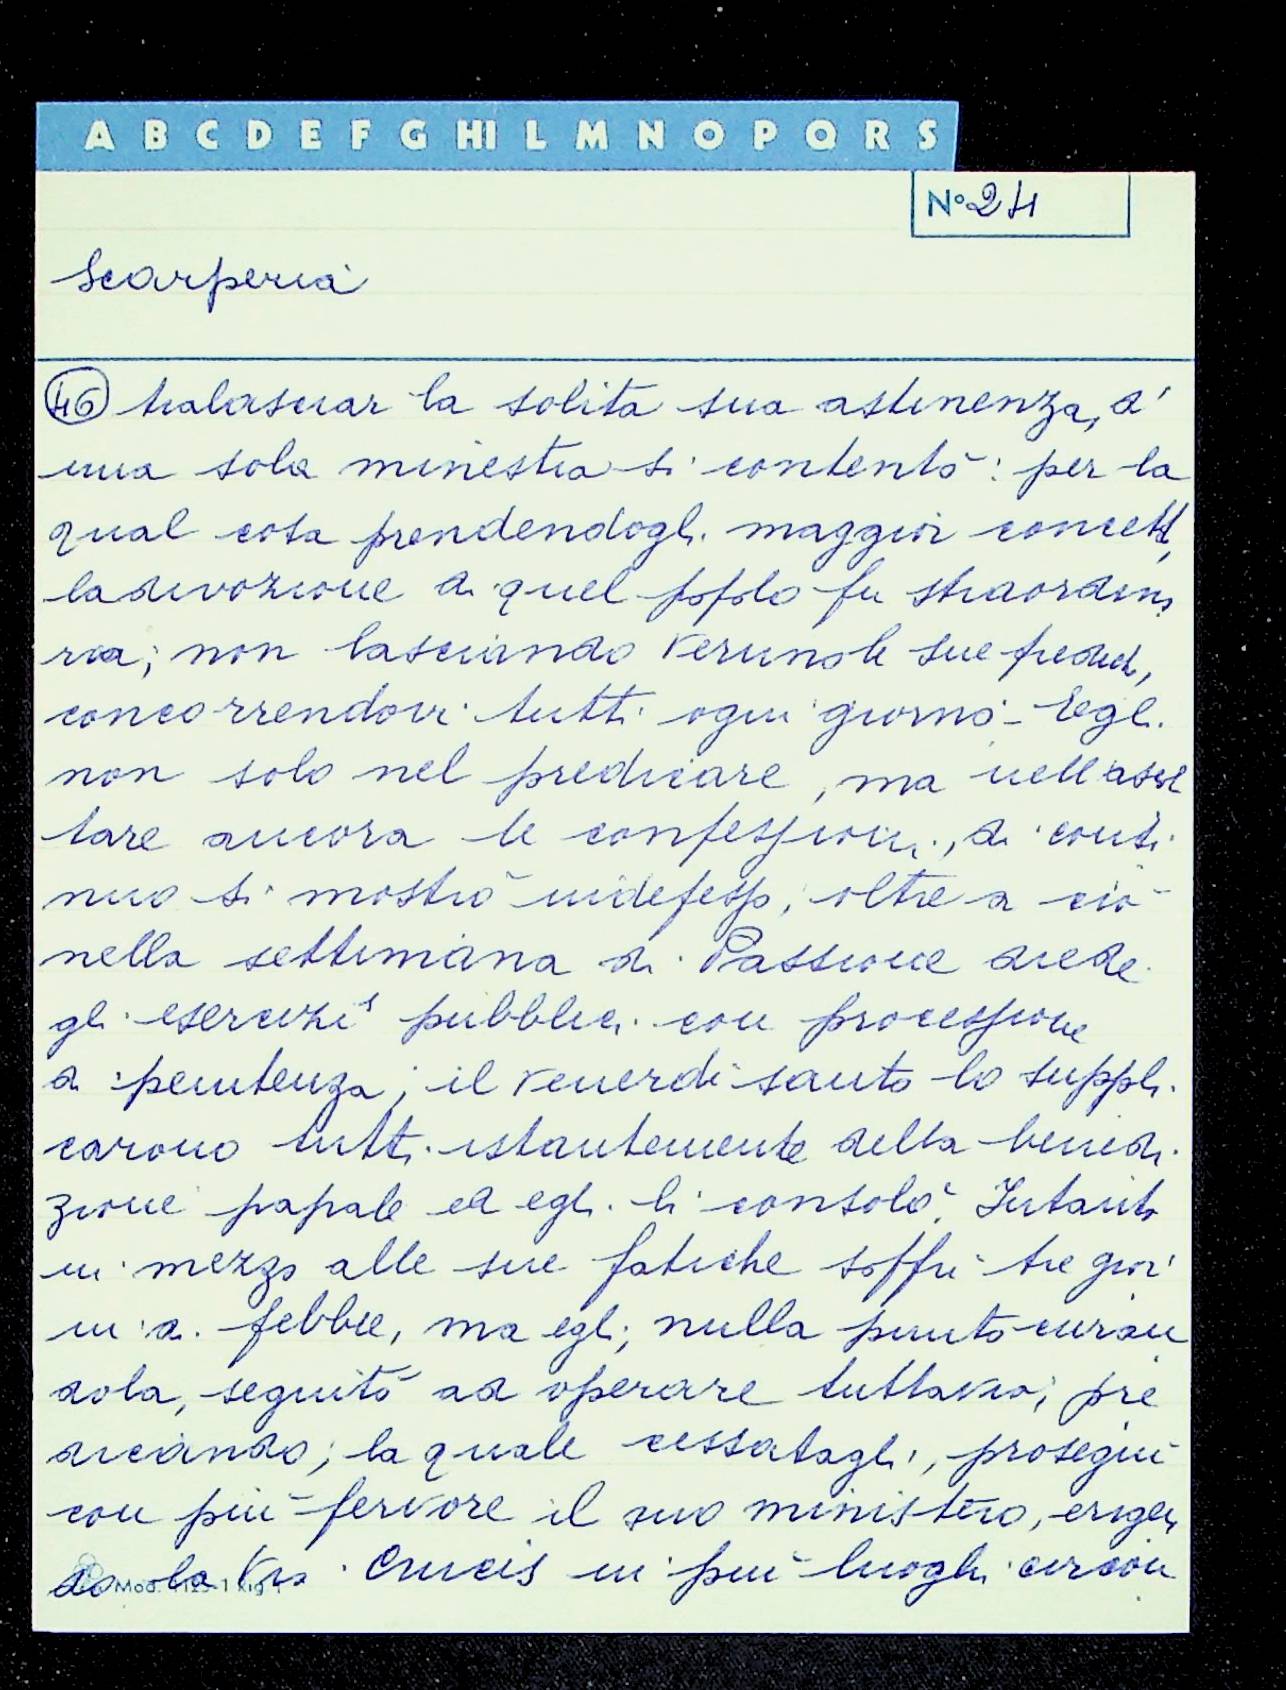 A B C D E F G HI L M N O P Q R S
N° 24
Scarperia
46 tralasciar la solita sua astinenza, d'
una sola minestra si contentò: per la
qual cosa prendendogli maggior concett,
la divozione di quel popolo fu straordina
ria; non lasciando veruno le sue prediche,
concorrendovi tutti ogni giorno - Egli
non solo nel predicare, ma nell'ascol
tare ancora le confessioni, di conti
nuo si mostrò indefesso; oltre a ciò
nella settimana di Passione diede
gli esercizi pubblici con processione
di penitenza; il venerdì santo lo suppli
carono tutti istantemente della benedi
zione papale ed egli li consolò. Intanto
in mezzo alle sue fatiche soffrì tre gior
ni di febbre, ma egli, nulla punto curan
dola, seguitò ad operare tuttavia, pre
dicando; la quale cessatagli, proseguì
con più fervore il suo ministero, erigen
do la Via Crucis in più luoghi circon
Mod.